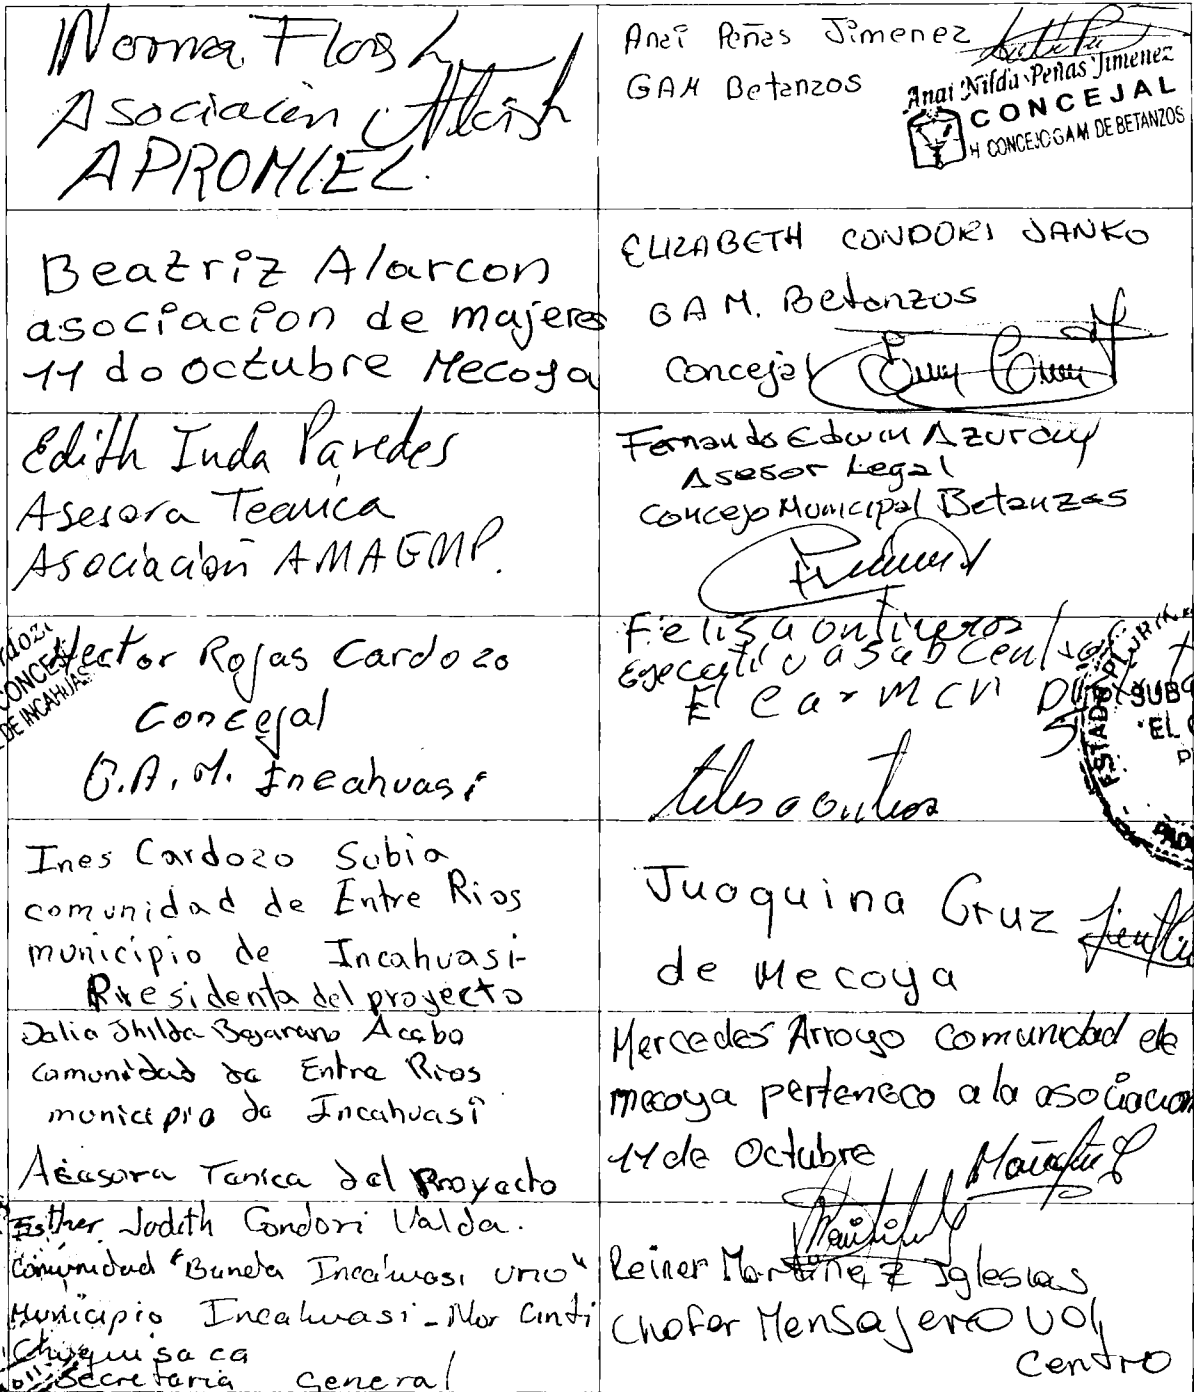 Norma Flores L.
Asociación
APROMIEL.
Anai Peñas Jimenez
GAM Betanzos
Anai Nilda Peñas Jimenez
CONCEJAL
H CONCEJO GAM DE BETANZOS
Beatriz Alarcon
asociacion de majeres
11 do octubre Mecoya
ELIZABETH CONDORI JANKO
GAM. Betanzos
Concejal
Edith Inda Paredes
Asesora Tecnica
Asociación AMAGMP.
Fernando Edwin Azurduy
Asesor Legal
Concejo Municipal Betanzos
Hector Rojas Cardozo
Concejal
G.A.M. Incahuasi
CONCEJ
DE INCAHUAS
Felisa ontiveros
Ejecutiva Sub Central
El Carmen
ESTADO PLURIN
SUB
EL
Ines Cardozo Subia
comunidad de Entre Rios
municipio de Incahuasi
Presidenta del proyecto
Juoquina Cruz
de Mecoya
Dalia Jhilda Bejarano Acebo
comunidad de Entre Rios
municipio de Incahuasi
Aseasora Tenica del Proyecto
Mercedes Arroyo comunidad de
mecoya perteneco a la asociacion
11 de Octubre
Esther Judith Condori Valda.
Comunidad "Banda Incahuasi uno"
Municipio Incahuasi - Nor Cinti
Chuquisaca
Secretaria General
Reiner Martinez Iglesias
Chofer Mensajero UOL
Centro